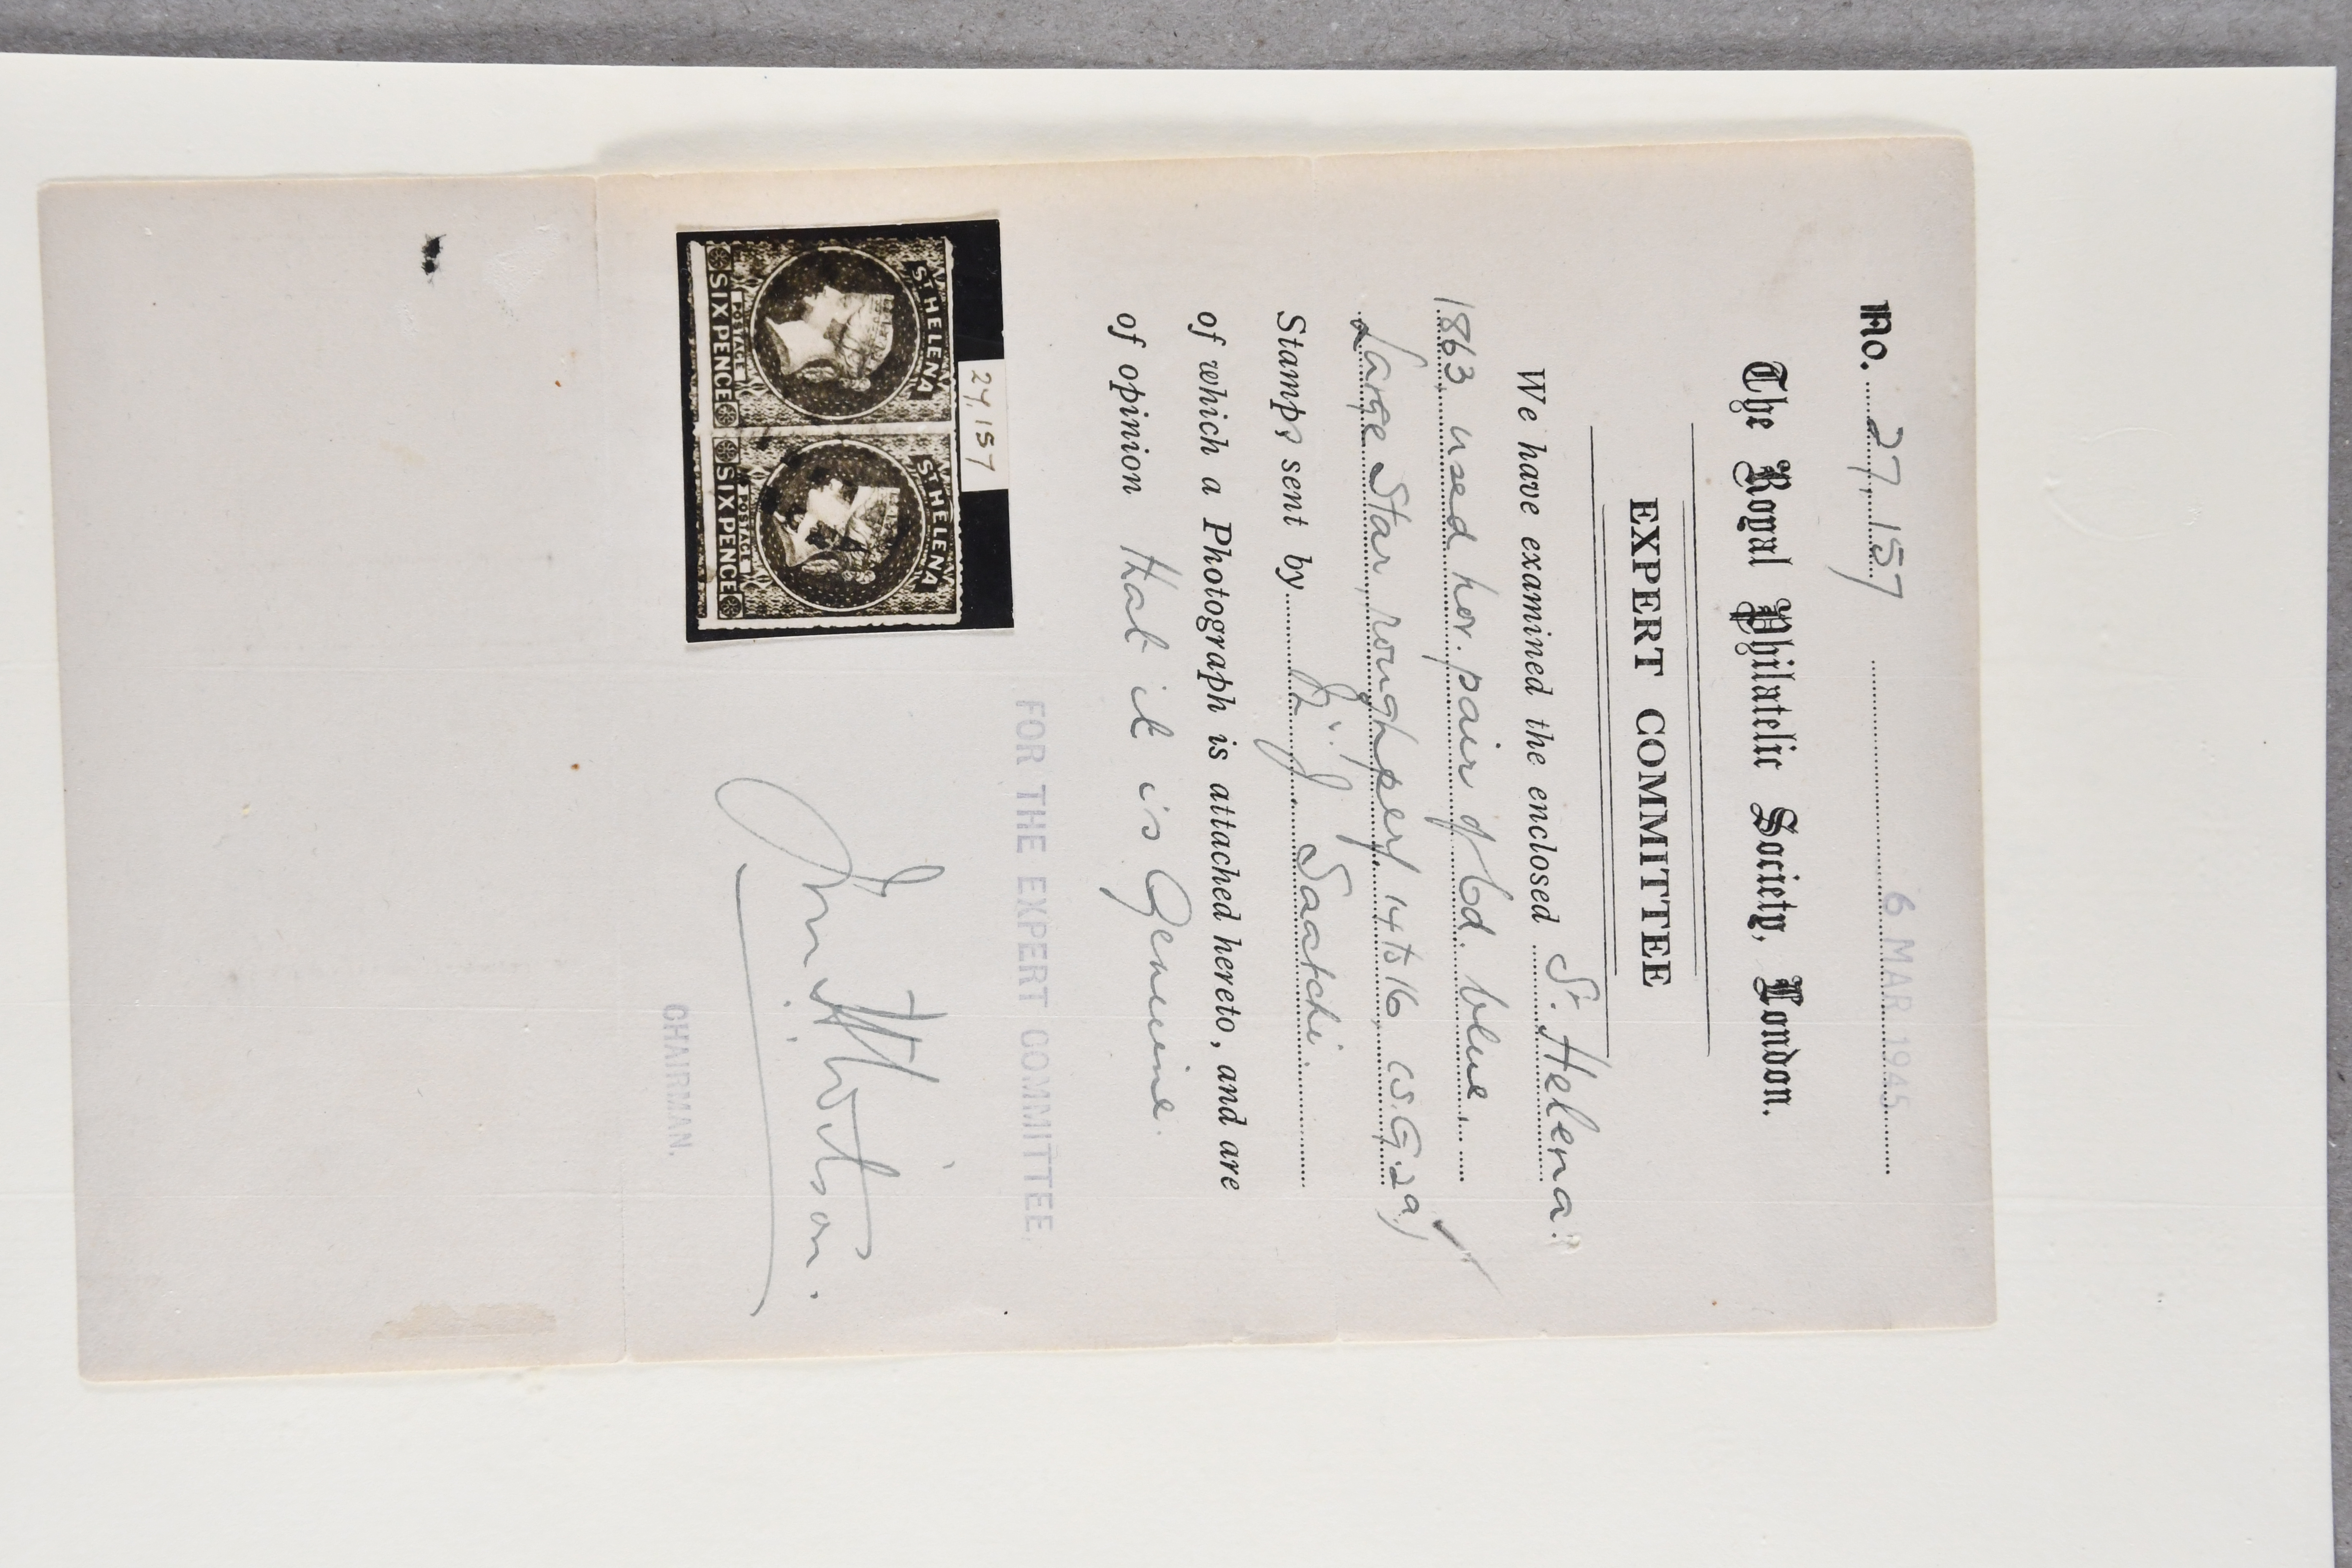 No. 27,157
6 MAR 1945
The Royal Philatelic Society, London.
EXPERT COMMITTEE
We have examined the enclosed St. Helena:
1863, used hor. pair of 6d. blue,
Large Star, rough perf 14 to 16, (S.G. 2a)
Stamps sent by Saatchi.
of which a Photograph is attached hereto, and are
of opinion that it is Genuine.
FOR THE EXPERT COMMITTEE.
27,157
ST HELENA ST HELENA
POSTAGE POSTAGE
SIX PENCE SIX PENCE
CHAIRMAN.